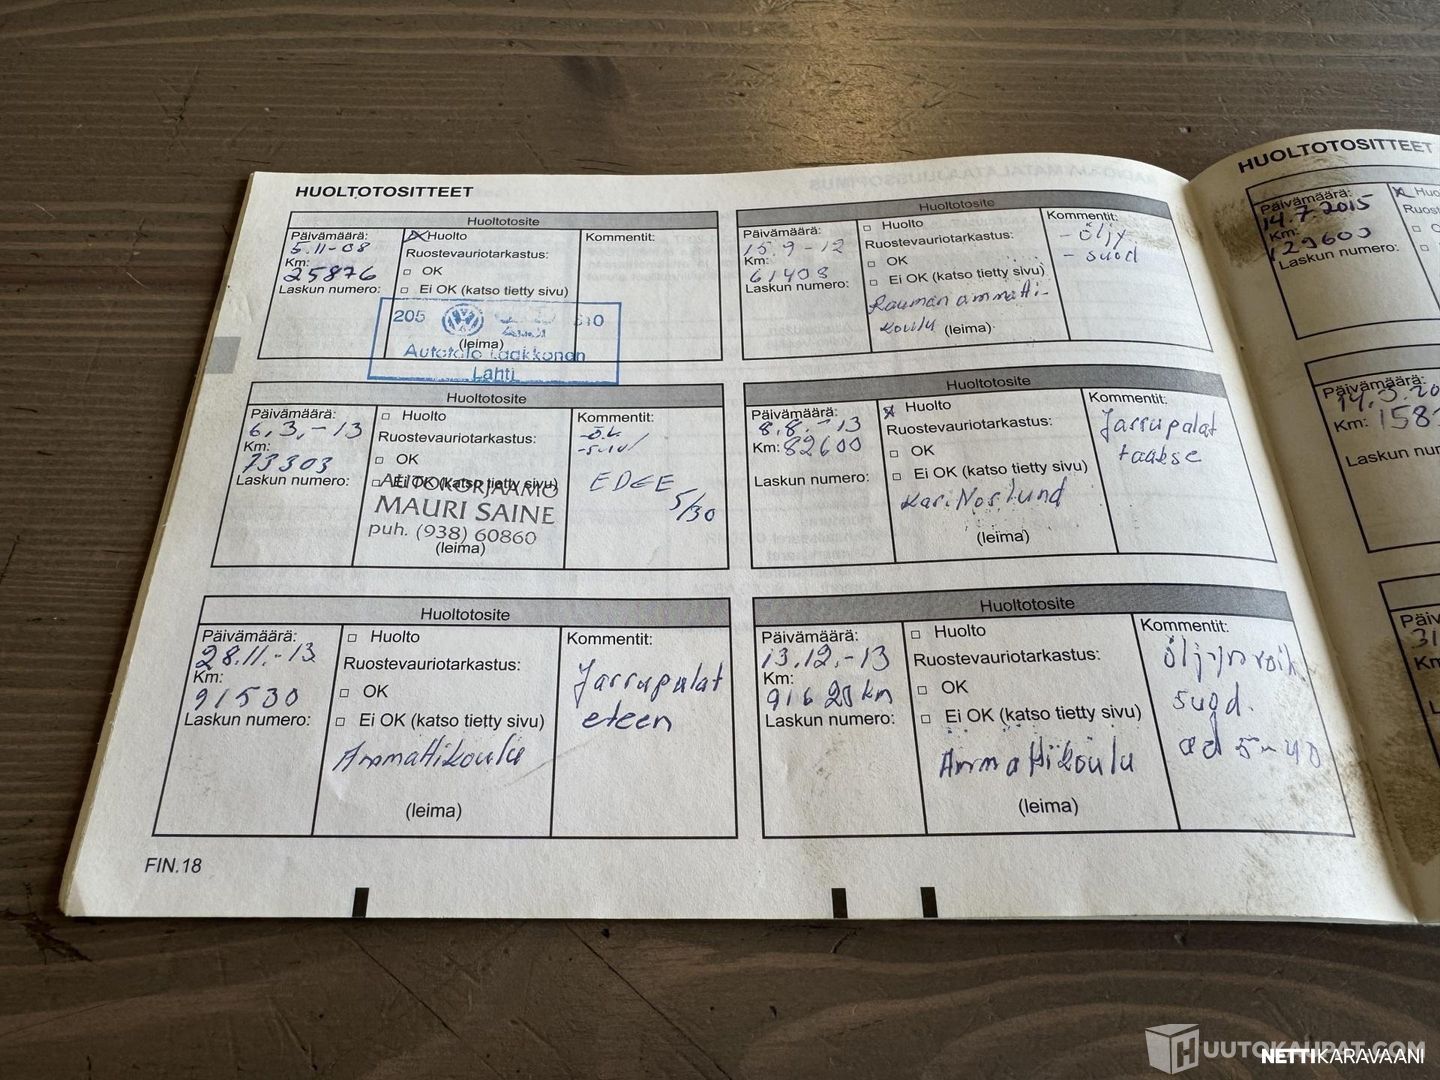 HUOLTOTOSITTEET
Huoltotosite
Päivämäärä:
5.11-08
Km:
25876
Laskun numero:
Huolto
Ruostevauriotarkastus:
OK
Ei OK (katso tietty sivu)
205
(leima)
Autotalo Laakkonen
Lahti
Kommentit:
Huoltotosite
Päivämäärä:
15.9-12
Km:
61408
Laskun numero:
Huolto
Ruostevauriotarkastus:
OK
Ei OK (katso tietty sivu)
Rauman ammatti-
koulu (leima)
Kommentit:
- öljy
- suod
Huoltotosite
Päivämäärä:
6.3.-13
Km:
73303
Laskun numero:
Huolto
Ruostevauriotarkastus:
OK
Ei OK (katso tietty sivu)
AUTOKORJAAMO
MAURI SAINE
puh. (938) 60860
(leima)
Kommentit:
EDGE
5/30
Huoltotosite
Päivämäärä:
8.8.-13
Km: 82600
Laskun numero:
Huolto
Ruostevauriotarkastus:
OK
Ei OK (katso tietty sivu)
Kari Noslund
(leima)
Kommentit:
Jarrupalat
taakse
Huoltotosite
Päivämäärä:
28.11.-13
Km:
91530
Laskun numero:
Huolto
Ruostevauriotarkastus:
OK
Ei OK (katso tietty sivu)
Ammattikoulu
(leima)
Kommentit:
Jarrupalat
eteen
Huoltotosite
Päivämäärä:
13.12.-13
Km:
91620 km
Laskun numero:
Huolto
Ruostevauriotarkastus:
OK
Ei OK (katso tietty sivu)
Ammattikoulu
(leima)
Kommentit:
suod.
5-40
FIN.18
HUOLTOTOSITTEET
Päivämäärä:
14.7.2015
Km:
129600
Laskun numero:
Päivämäärä:
Km: 158
Laskun
31
Km
HUUTOKAUPAT.COM
NETTIKARAVAANI